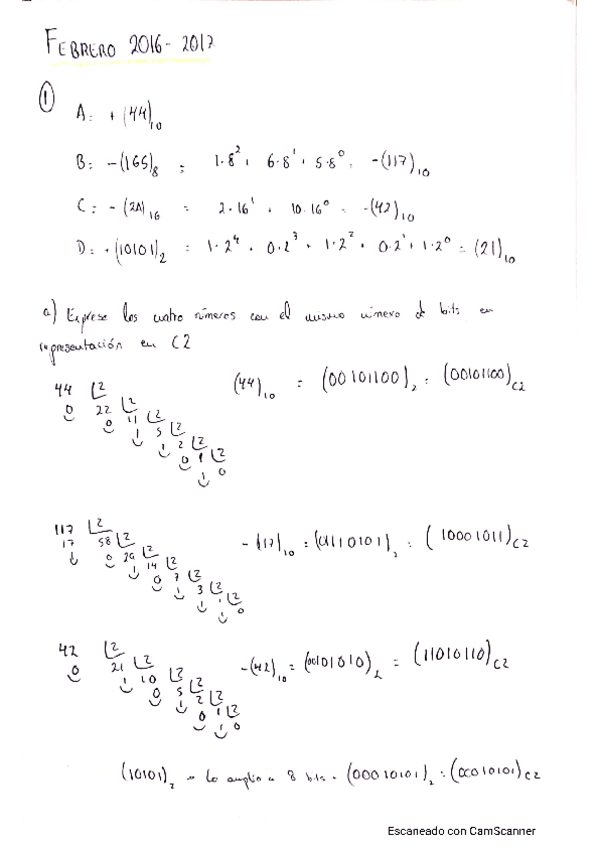 FEBRERO 2016-2017
①
A: +(44)₁₀
B: -(165)₈ = 1·8² + 6·8¹ + 5·8⁰ = -(117)₁₀
C: -(2A)₁₆ = 2·16¹ + 10·16⁰ = -(42)₁₀
D: +(10101)₂ = 1·2⁴ + 0·2³ + 1·2² + 0·2¹ + 1·2⁰ = (21)₁₀
a) Exprese los cuatro números con el mismo número de bits en
representación en C2
44 2
0 22 2
0 11 2
1 5 2
1 2 2
0 1 2
1 0
(44)₁₀ = (00101100)₂ = (00101100)C2
117 2
17 58 2
1 0 29 2
1 14 2
0 7 2
1 3 2
1 1 2
1 0
-(117)₁₀ = (01110101)₂ = (10001011)C2
42 2
0 21 2
1 10 2
0 5 2
1 2 2
0 1 2
1 0
-(42)₁₀ = (00101010)₂ = (11010110)C2
(10101)₂ = lo amplio a 8 bits = (00010101)₂ = (00010101)C2
Escaneado con CamScanner